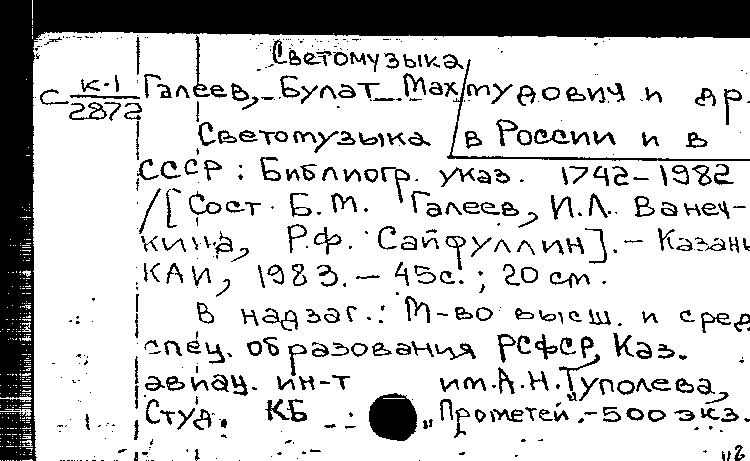 Светомузыка
С к-1/2872 Галеев, Булат Махмудович и др.
Светомузыка в России и в
СССР : Библиогр. указ. 1742-1982
/[Сост. Б.М. Галеев, И.Л. Ванеч-
кина, Р.Ф. Сайфуллин]. - Казань
КАИ, 1983. - 45с. ; 20 см.
В надзаг.: М-во высш. и сред
спец. образования РСФСР, Каз.
авиац. ин-т им. А.Н. Туполева,
Студ. КБ „Прометей". - 500 экз.